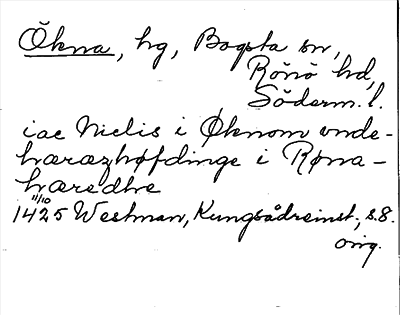 Ökna, hg, Bogsta sn,
Rönö hd,
Söderm. l.
iac Nielis i Øknom vnde-
hæræzhøfdinge i Røna-
hæredhe
11/10
1425 Westman, Kungsådreinst., s. 8.
orig.